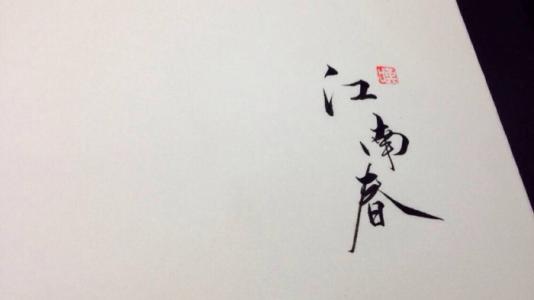 江南春